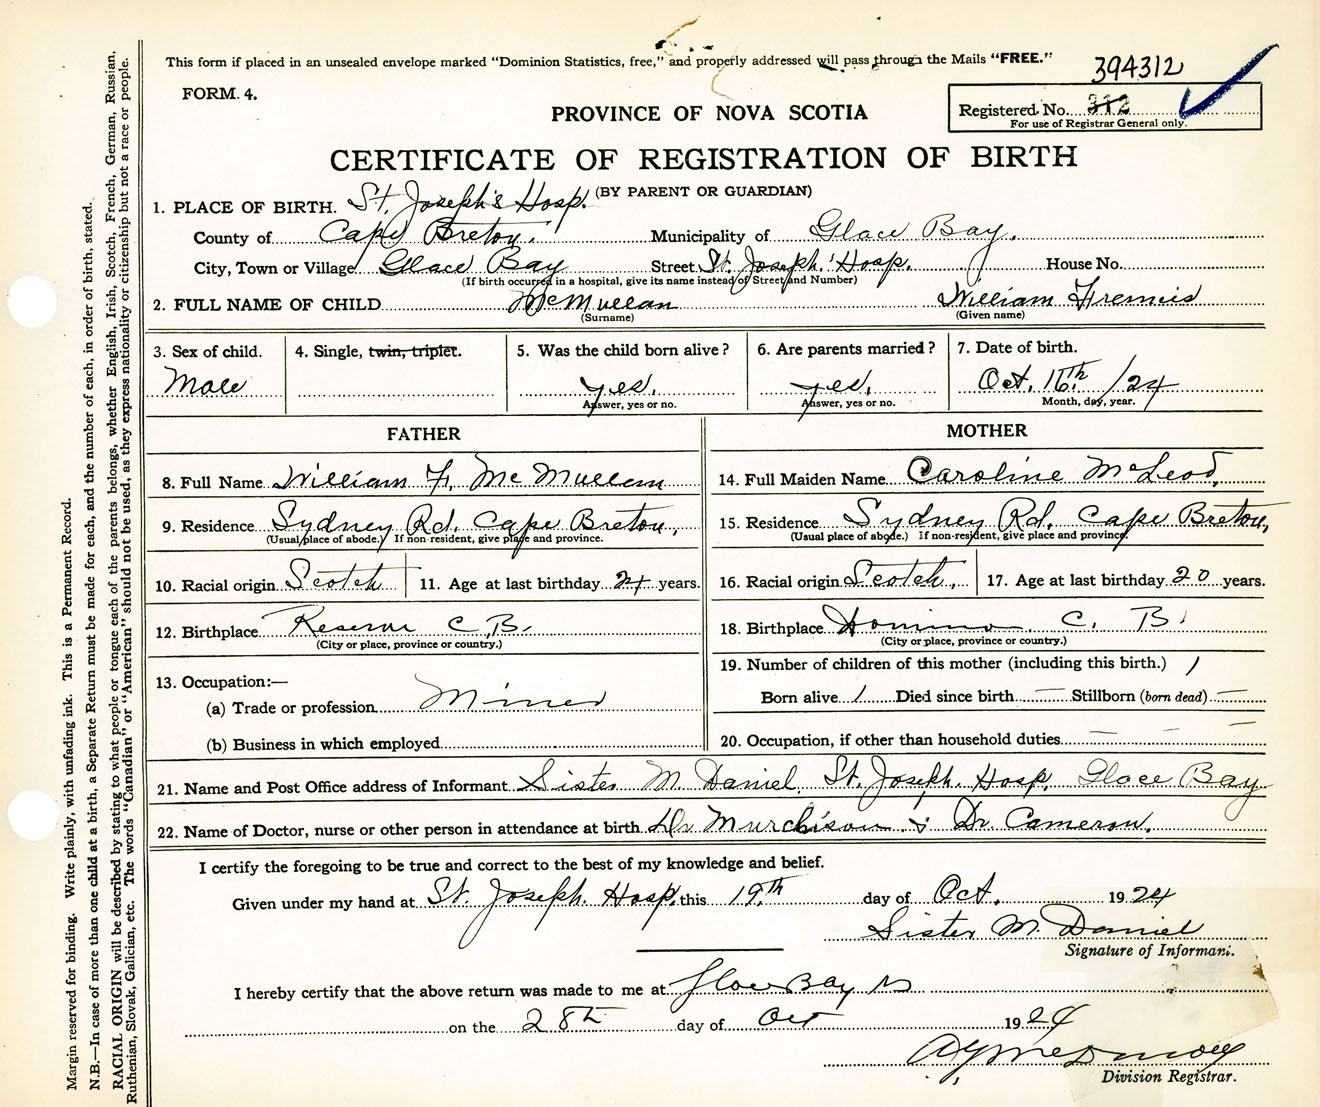 This form if placed in an unsealed envelope marked "Dominion Statistics, free," and properly addressed will pass through the Mails "FREE."
394312
FORM. 4.
PROVINCE OF NOVA SCOTIA
Registered No. 312
For use of Registrar General only.
CERTIFICATE OF REGISTRATION OF BIRTH
(BY PARENT OR GUARDIAN)
1. PLACE OF BIRTH. St. Joseph's Hosp.
County of Cape Breton. Municipality of Glace Bay.
City, Town or Village Glace Bay Street St. Joseph' Hosp. House No.
(If birth occurred in a hospital, give its name instead of Street and Number)
2. FULL NAME OF CHILD McMullan William Francis
(Surname) (Given name)
3. Sex of child. 4. Single, twin, triplet. 5. Was the child born alive? 6. Are parents married? 7. Date of birth.
Male yes. yes. Oct. 16th /24
Answer, yes or no. Answer, yes or no. Month, day, year.
FATHER MOTHER
8. Full Name William F. McMullan 14. Full Maiden Name Caroline McLeod,
9. Residence Sydney Rd. Cape Breton, 15. Residence Sydney Rd. Cape Breton,
(Usual place of abode.) If non-resident, give place and province. (Usual place of abode.) If non-resident, give place and province.
10. Racial origin Scotch 11. Age at last birthday 24 years. 16. Racial origin Scotch, 17. Age at last birthday 20 years.
12. Birthplace Reserve C.B. 18. Birthplace Dominion C. B.
(City or place, province or country.) (City or place, province or country.)
19. Number of children of this mother (including this birth.) 1
13. Occupation:—
(a) Trade or profession Miner Born alive 1 Died since birth — Stillborn (born dead) —
(b) Business in which employed 20. Occupation, if other than household duties — — —
21. Name and Post Office address of Informant Sister M. Daniel, St. Joseph. Hosp, Glace Bay
22. Name of Doctor, nurse or other person in attendance at birth Dr Murchison & Dr. Cameron.
I certify the foregoing to be true and correct to the best of my knowledge and belief.
Given under my hand at St. Joseph. Hosp. this 19th day of Oct. 1924
Sister M. Daniel
Signature of Informant.
I hereby certify that the above return was made to me at Glace Bay
on the 28th day of Oct 1924
Division Registrar.
Margin reserved for binding. Write plainly, with unfading ink. This is a Permanent Record.
N.B.—In case of more than one child at a birth, a Separate Return must be made for each, and the number of each, in order of birth, stated.
RACIAL ORIGIN will be described by stating to what people or tongue each of the parents belongs, whether English, Irish, Scotch, French, German, Russian,
Ruthenian, Slovak, Galician, etc. The words "Canadian" or "American" should not be used, as they express nationality or citizenship but not a race or people.